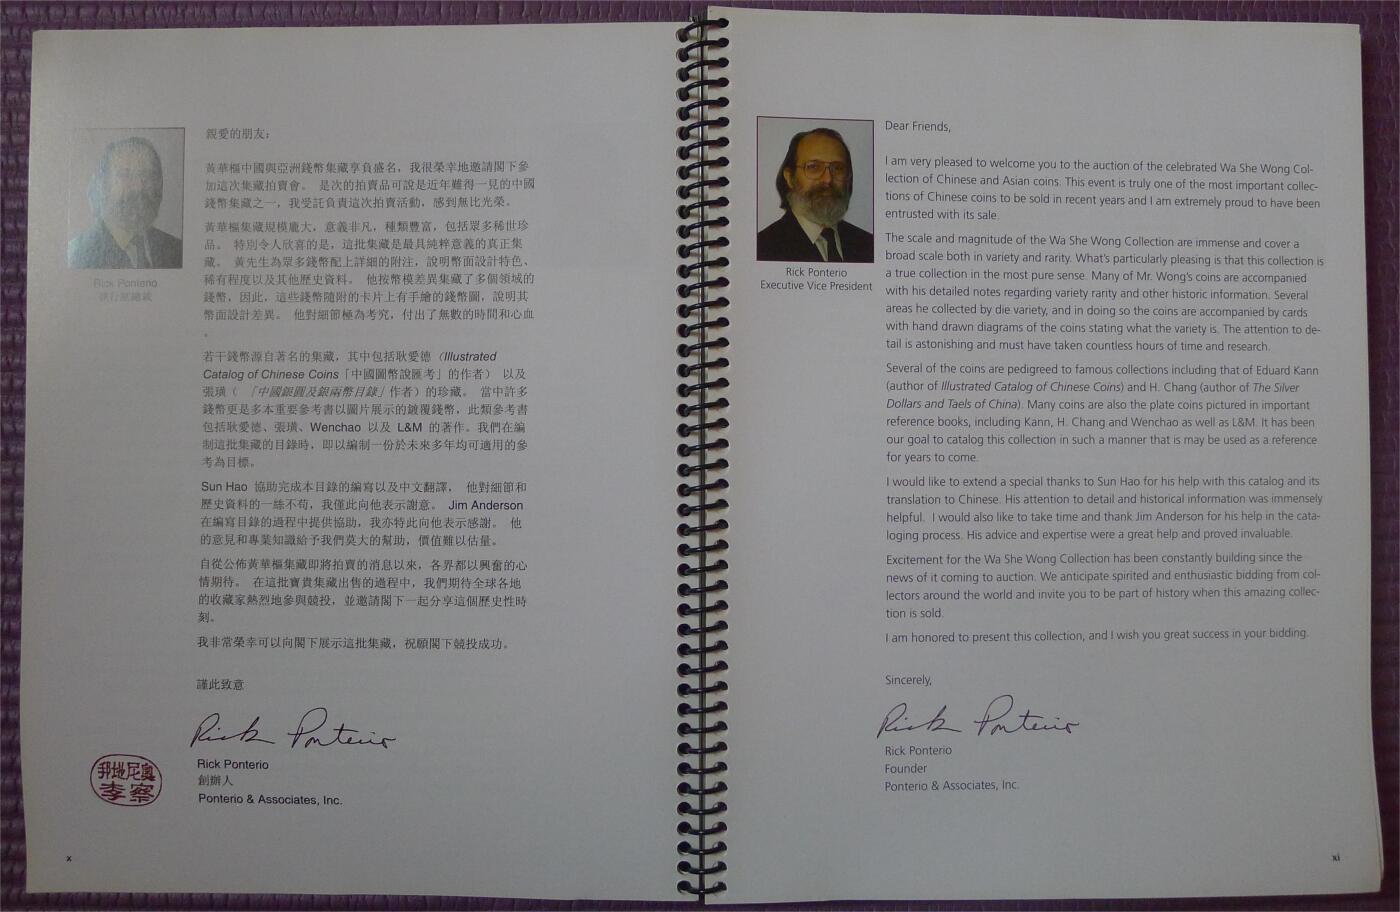 親愛的朋友：
黃華樞中國與亞洲錢幣集藏享負盛名，我很榮幸地邀請閣下參
加這次集藏拍賣會。 是次的拍賣品可說是近年難得一見的中國
錢幣集藏之一，我受託負責這次拍賣活動，感到無比光榮。
黃華樞集藏規模龐大，意義非凡，種類豐富，包括眾多稀世珍
品。 特別令人欣喜的是，這批集藏是最具純粹意義的真正集
藏。 黃先生為眾多錢幣配上詳細的附注，說明幣面設計特色、
稀有程度以及其他歷史資料。 他按幣模差異集藏了多個領域的
錢幣，因此，這些錢幣隨附的卡片上有手繪的錢幣圖，說明其
幣面設計差異。 他對細節極為考究，付出了無數的時間和心血
。
若干錢幣源自著名的集藏，其中包括耿愛德（Illustrated
Catalog of Chinese Coins「中國圖幣說匯考」的作者） 以及
張璜（ 「中國銀圓及銀兩幣目錄」作者）的珍藏。 當中許多
錢幣更是多本重要參考書以圖片展示的鍍覆錢幣，此類參考書
包括耿愛德、張璜、Wenchao 以及 L&M 的著作。我們在編
制這批集藏的目錄時，即以編制一份於未來多年均可適用的參
考為目標。
Sun Hao 協助完成本目錄的編寫以及中文翻譯， 他對細節和
歷史資料的一絲不苟，我僅此向他表示謝意。 Jim Anderson
在編寫目錄的過程中提供協助，我亦特此向他表示感謝。 他
的意見和專業知識給予我們莫大的幫助，價值難以估量。
自從公佈黃華樞集藏即將拍賣的消息以來，各界都以興奮的心
情期待。 在這批寶貴集藏出售的過程中，我們期待全球各地
的收藏家熱烈地參與競投，並邀請閣下一起分享這個歷史性時
刻。
我非常榮幸可以向閣下展示這批集藏，祝願閣下競投成功。
謹此致意
Rick Ponterio
Rick Ponterio
創辦人
Ponterio & Associates, Inc.
Rick Ponterio
執行副總裁
邦地尼奧
李察
x
Dear Friends,
I am very pleased to welcome you to the auction of the celebrated Wa She Wong Col-
lection of Chinese and Asian coins. This event is truly one of the most important collec-
tions of Chinese coins to be sold in recent years and I am extremely proud to have been
entrusted with its sale.
The scale and magnitude of the Wa She Wong Collection are immense and cover a
broad scale both in variety and rarity. What's particularly pleasing is that this collection is
a true collection in the most pure sense. Many of Mr. Wong's coins are accompanied
with his detailed notes regarding variety rarity and other historic information. Several
areas he collected by die variety, and in doing so the coins are accompanied by cards
with hand drawn diagrams of the coins stating what the variety is. The attention to de-
tail is astonishing and must have taken countless hours of time and research.
Several of the coins are pedigreed to famous collections including that of Eduard Kann
(author of Illustrated Catalog of Chinese Coins) and H. Chang (author of The Silver
Dollars and Taels of China). Many coins are also the plate coins pictured in important
reference books, including Kann, H. Chang and Wenchao as well as L&M. It has been
our goal to catalog this collection in such a manner that is may be used as a reference
for years to come.
I would like to extend a special thanks to Sun Hao for his help with this catalog and its
translation to Chinese. His attention to detail and historical information was immensely
helpful. I would also like to take time and thank Jim Anderson for his help in the cata-
loging process. His advice and expertise were a great help and proved invaluable.
Excitement for the Wa She Wong Collection has been constantly building since the
news of it coming to auction. We anticipate spirited and enthusiastic bidding from col-
lectors around the world and invite you to be part of history when this amazing collec-
tion is sold.
I am honored to present this collection, and I wish you great success in your bidding.
Sincerely,
Rick Ponterio
Rick Ponterio
Founder
Ponterio & Associates, Inc.
Rick Ponterio
Executive Vice President
xi